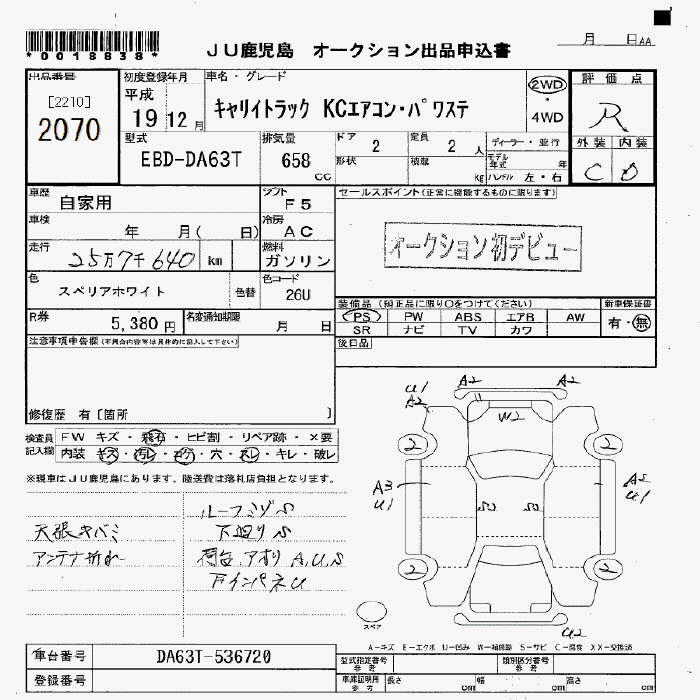 *0018838*
JU鹿児島 オークション出品申込書
月 日 AA
出品番号
[2210]
2070
初度登録年月
平成
19 12月
車名・グレード
キャリイトラック KCエアコン・パワステ
2WD
・
4WD
評価点
R
外装 内装
C D
型式
EBD-DA63T
排気量
658
CC
ドア
2
定員
2 人
形状
積載
Kg
ディーラー・並行
モデル年式 年
ハンドル 左・右
車歴
自家用
シフト
F5
車検
年 月( 日)
冷房
AC
走行
25万7千640 km
燃料
ガソリン
色
スペリアホワイト
色替
色コード
26U
R券
5,380 円
名変通知期限
月 日
セールスポイント(正常に機能するものに限ります)
オークション初デビュー
装備品(純正品に限り○をつけてください)
PS PW ABS エアB AW
SR ナビ TV カワ
新車保証書
有・無
後日品
注意事項申告欄(不具合内容等は具体的に記入して下さい)
修復歴 有[箇所 ]
検査員
記入欄
FW キズ・飛石・ヒビ割・リペア跡・×要
内装 キズ・汚レ・コゲ・穴・スレ・キレ・破レ
※現車はJU鹿児島にあります。陸送費は落札店負担となります。
ルーフミゾS
天張キバミ
下廻りS
アンテナ折れ
荷台、アオリ A,U,S
下インパネU
U1
A2
A2
A2
W2
2
2
A3
U1
S
S
A2
U1
2
2
U2
スペア
A-キズ E-エクボ U-凹み W-補修跡 S-サビ C-腐食 XX-交換済
車台番号
DA63T-536720
登録番号
型式指定番号
参考
類別区分番号
参考
車庫証明用
参考
長さ cm
幅 cm
高さ cm